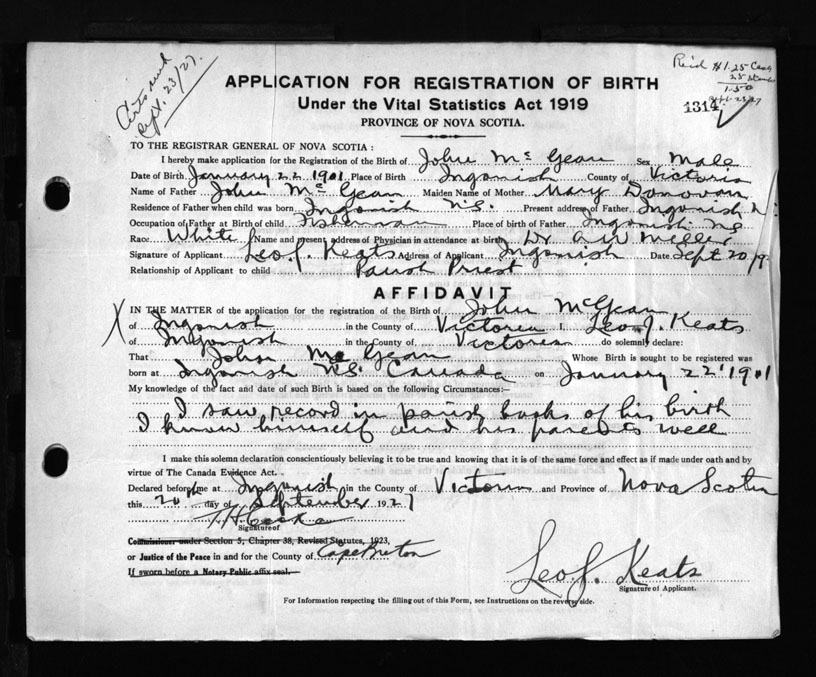 Certs send
Sept. 23/27.
Paid $1.25 Cash
25 Stamps
1.50
Sept. 23/27
1314
APPLICATION FOR REGISTRATION OF BIRTH
Under the Vital Statistics Act 1919
PROVINCE OF NOVA SCOTIA.
TO THE REGISTRAR GENERAL OF NOVA SCOTIA :
I hereby make application for the Registration of the Birth of John McGean Sex Male
Date of Birth January 22 1901 Place of Birth Ingonish County of Victoria
Name of Father John McGean Maiden Name of Mother Mary Donovan
Residence of Father when child was born Ingonish N.S. Present address of Father Ingonish N.
Occupation of Father at Birth of child Fisherman Place of birth of Father Ingonish N.S.
Race White Name and present address of Physician in attendance at birth Dr
Signature of Applicant Leo J. Keats Address of Applicant Ingonish Date Sept 20/9
Relationship of Applicant to child Parish Priest
AFFIDAVIT
IN THE MATTER of the application for the registration of the Birth of John McGean
X of Ingonish in the County of Victoria I, Leo J. Keats
of Ingonish in the County of Victoria do solemnly declare:
That John McGean Whose Birth is sought to be registered was
born at Ingonish N.S. Canada on January 22 1901
My knowledge of the fact and date of such Birth is based on the following Circumstances:—
I saw record in parish books of his birth
I know himself and his parents well
I make this solemn declaration conscientiously believing it to be true and knowing that it is of the same force and effect as if made under oath and by
virtue of The Canada Evidence Act.
Declared before me at Ingonish in the County of Victoria and Province of Nova Scotia
this 20th day of September 1927
Signature of
Commissioner under Section 5, Chapter 38, Revised Statutes, 1923,
or Justice of the Peace in and for the County of Cape Breton
If sworn before a Notary Public affix seal.
Leo J. Keats
Signature of Applicant.
For Information respecting the filling out of this Form, see Instructions on the reverse side.